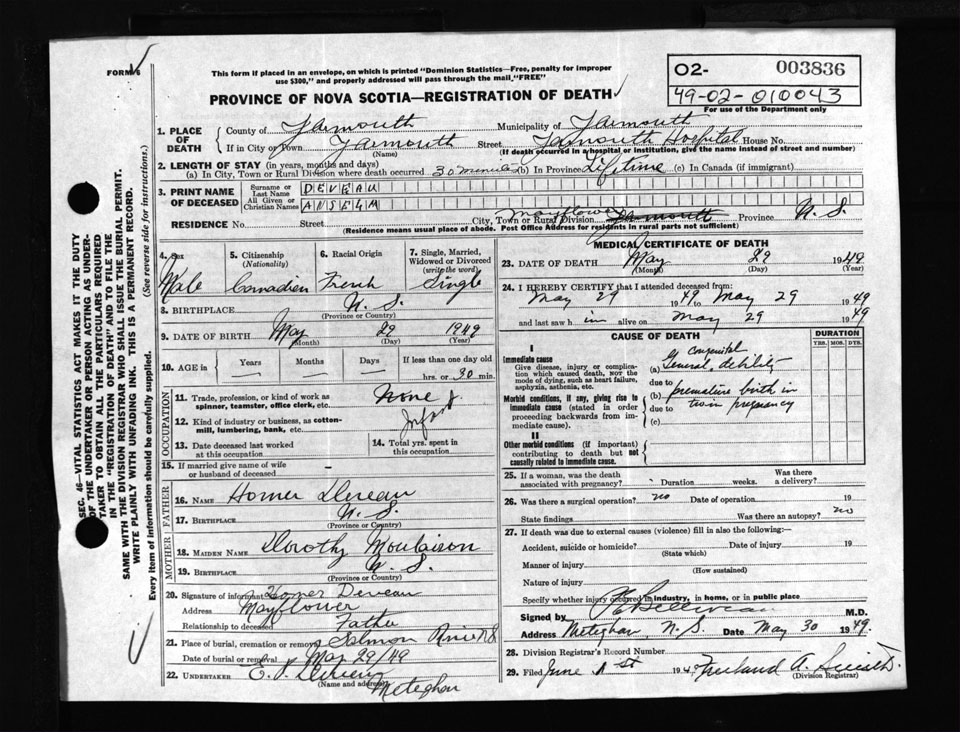 FORM 6
This form if placed in an envelope, on which is printed "Dominion Statistics—Free, penalty for improper
use $300," and properly addressed will pass through the mail, "FREE"
PROVINCE OF NOVA SCOTIA—REGISTRATION OF DEATH
02- 003836
49-02-010043
For use of the Department only
1. PLACE OF DEATH
County of Yarmouth Municipality of Yarmouth
If in City or Town Yarmouth Street Yarmouth Hospital House No.
(Name) (If death occurred in a hospital or institution, give the name instead of street and number)
2. LENGTH OF STAY (in years, months and days)
(a) In City, Town or Rural Division where death occurred 30 minutes (b) In Province Lifetime (c) In Canada (if immigrant)
3. PRINT NAME OF DECEASED
Surname or Last Name DEVEAU
All Given or Christian Names ANSELM
RESIDENCE No. Street City, Town or Rural Division Mayflower Yarmouth Province N.S.
(Residence means usual place of abode. Post Office Address for residents in rural parts not sufficient)
4. Sex Male
5. Citizenship (Nationality) Canadian
6. Racial Origin French
7. Single, Married, Widowed or Divorced (write the word) Single
8. BIRTHPLACE N.S.
(Province or Country)
9. DATE OF BIRTH May 29 1949
(Month) (Day) (Year)
10. AGE in Years Months Days If less than one day old
hrs. or 30 min.
OCCUPATION
11. Trade, profession, or kind of work as
spinner, teamster, office clerk, etc. None
12. Kind of industry or business, as cotton-
mill, lumbering, bank, etc. Infant
13. Date deceased last worked at this occupation
14. Total yrs. spent in this occupation
15. If married give name of wife
or husband of deceased
FATHER
16. NAME Homer Deveau
17. BIRTHPLACE N.S.
(Province or Country)
MOTHER
18. MAIDEN NAME Dorothy Moulaison
19. BIRTHPLACE N.S.
(Province or Country)
20. Signature of informant Homer Deveau
Address Mayflower
Relationship to deceased Father
21. Place of burial, cremation or removal Salmon River N.S.
Date of burial or removal May 29/49
22. UNDERTAKER
(Name and address) Meteghan
MEDICAL CERTIFICATE OF DEATH
23. DATE OF DEATH May 29 1949
(Month) (Day) (Year)
24. I HEREBY CERTIFY that I attended deceased from:
May 29 1949 to May 29 1949
and last saw h im alive on May 29 1949
CAUSE OF DEATH
DURATION
YRS. MOS. DYS.
I
Immediate cause
Give disease, injury or complica-
tion which caused death, NOT the
mode of dying, such as heart failure,
asphyxia, asthenia, etc.
Morbid conditions, if any, giving rise to
immediate cause (stated in order
proceeding backwards from im-
mediate cause).
II
Other morbid conditions (if important)
contributing to death but not
causally related to immediate cause.
congenital
(a) General debility
due to
(b) premature birth in
due to twin pregnancy
(c)
25. If a woman, was the death
associated with pregnancy? Duration weeks. Was there a delivery?
26. Was there a surgical operation? no Date of operation 19
State findings Was there an autopsy? no
27. If death was due to external causes (violence) fill in also the following:—
Accident, suicide or homicide? Date of injury 19
(State which)
Manner of injury
(How sustained)
Nature of injury
Specify whether injury occurred in industry, in home, or in public place
Signed by Belliveau M.D.
Address Meteghan, N.S. Date May 30 1949.
28. Division Registrar's Record Number
29. Filed June 1st 194
(Division Registrar)
SEC. 46—VITAL STATISTICS ACT MAKES IT THE DUTY
OF THE UNDERTAKER OR PERSON ACTING AS UNDER-
TAKER TO OBTAIN ALL THE PARTICULARS REQUIRED
IN THE "REGISTRATION OF DEATH" AND TO FILE THE
SAME WITH THE DIVISION REGISTRAR WHO SHALL ISSUE THE BURIAL PERMIT.
WRITE PLAINLY WITH UNFADING INK. THIS IS A PERMANENT RECORD.
Every item of information should be carefully supplied. (See reverse side for instructions.)